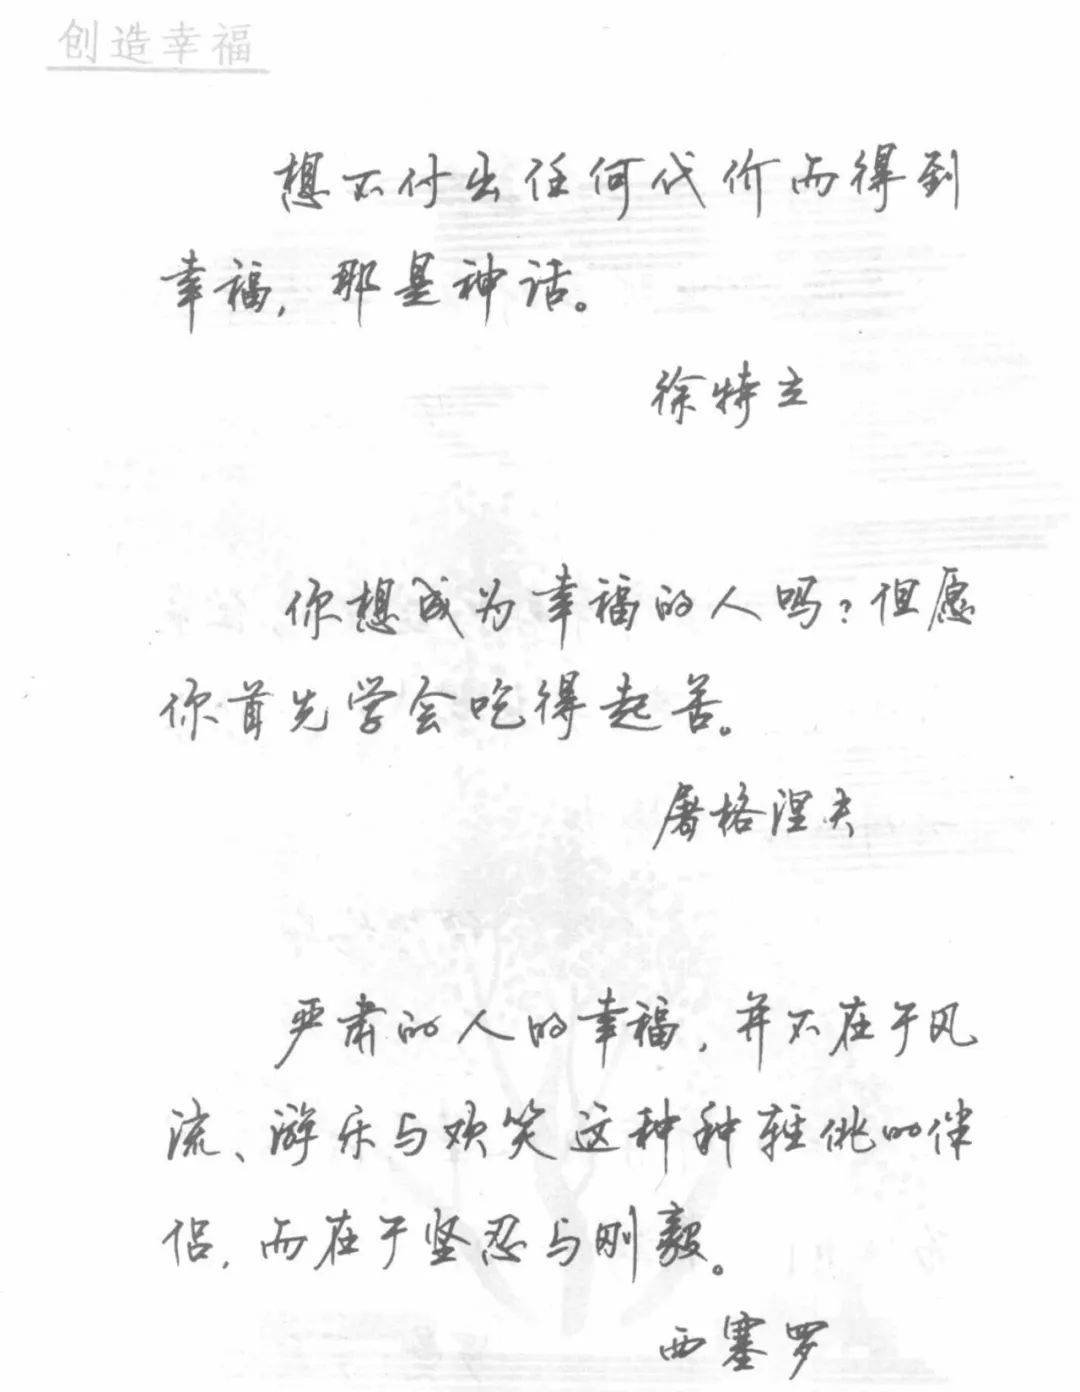 创造幸福
想不付出任何代价而得到
幸福，那是神话。
徐特立
你想成为幸福的人吗？但愿
你首先学会吃得起苦。
屠格涅夫
严肃的人的幸福，并不在于风
流、游乐与欢笑这种种轻佻的伴
侣，而在于坚忍与刚毅。
西塞罗